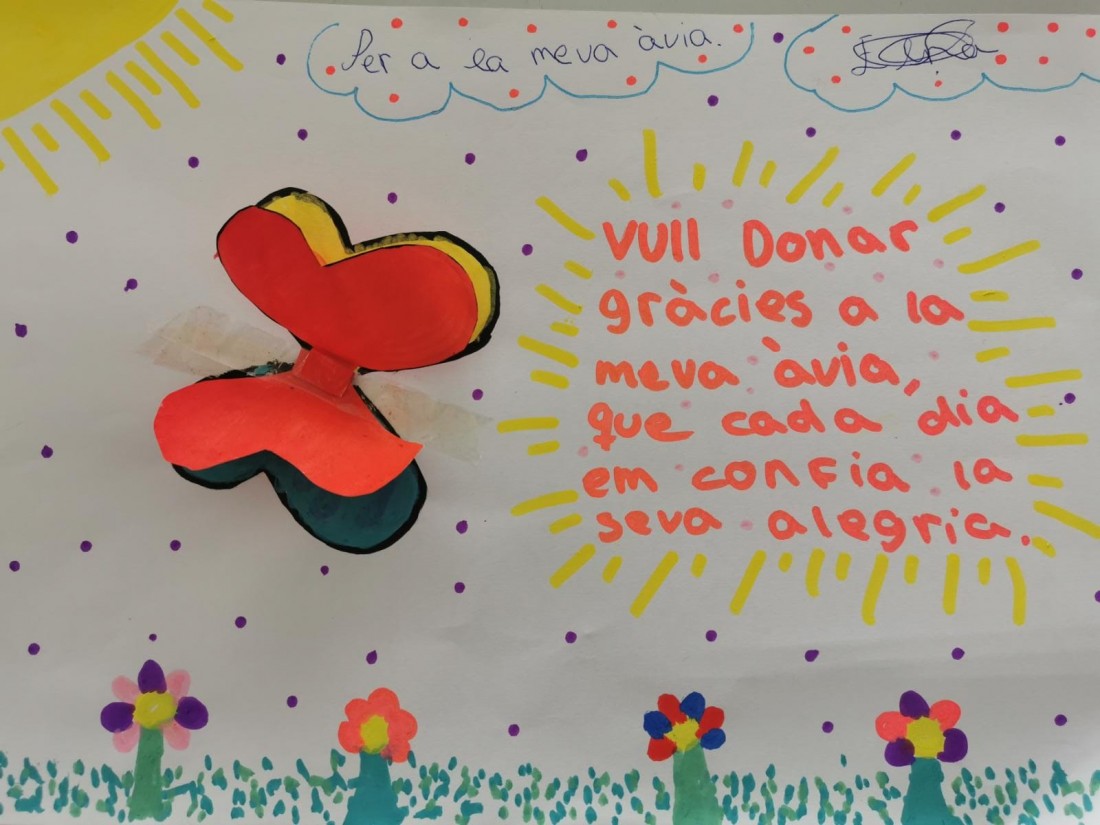 Per a la meva àvia.
VUll Donar
gràcies a la
meva àvia,
que cada dia
em confia la
seva alegria.